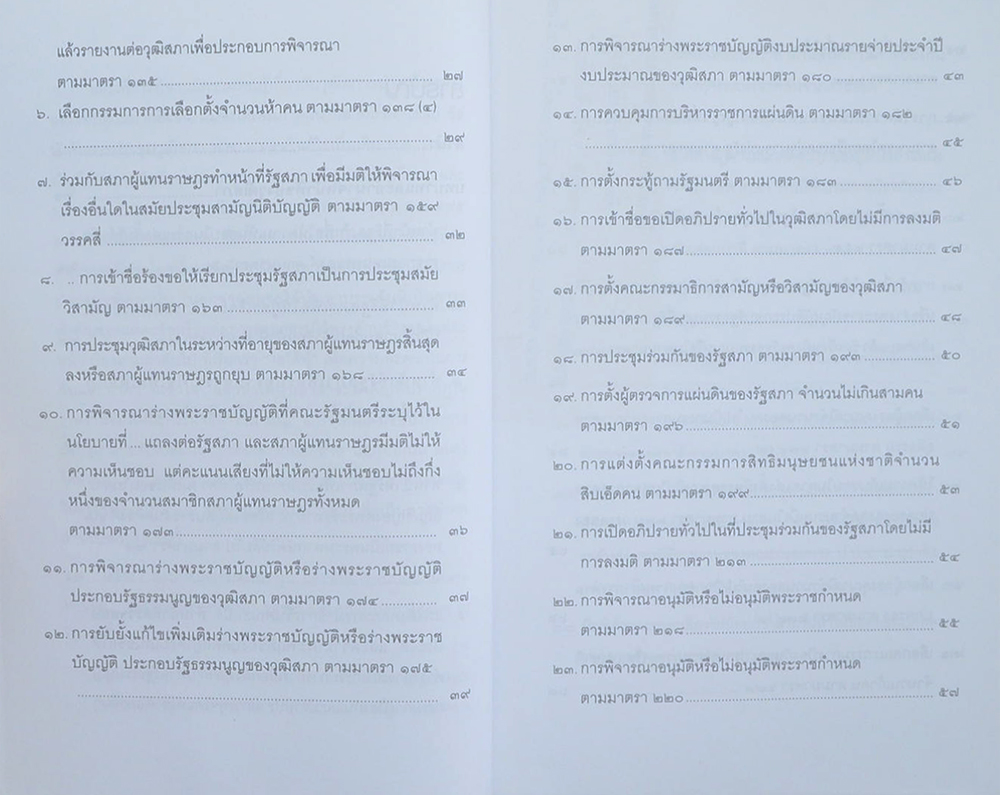 แล้วรายงานต่อวุฒิสภาเพื่อประกอบการพิจารณา
ตามมาตรา ๑๓๕ ........................................ ๒๗
๖. เลือกกรรมการการเลือกตั้งจำนวนห้าคน ตามมาตรา ๑๓๘ (๔)
........................................ ๒๙
๗. ร่วมกับสภาผู้แทนราษฎรทำหน้าที่รัฐสภา เพื่อมีมติให้พิจารณา
เรื่องอื่นใดในสมัยประชุมสามัญนิติบัญญัติ ตามมาตรา ๑๕๙
วรรคสี่ ........................................ ๓๒
๘. .. การเข้าชื่อร้องขอให้เรียกประชุมรัฐสภาเป็นการประชุมสมัย
วิสามัญ ตามมาตรา ๑๖๓ ........................................ ๓๓
๙. การประชุมวุฒิสภาในระหว่างที่อายุของสภาผู้แทนราษฎรสิ้นสุด
ลงหรือสภาผู้แทนราษฎรถูกยุบ ตามมาตรา ๑๖๘ .................. ๓๔
๑๐. การพิจารณาร่างพระราชบัญญัติที่คณะรัฐมนตรีระบุไว้ใน
นโยบายที่ ... แถลงต่อรัฐสภา และสภาผู้แทนราษฎรมีมติไม่ให้
ความเห็นชอบ แต่คะแนนเสียงที่ไม่ให้ความเห็นชอบไม่ถึงกึ่ง
หนึ่งของจำนวนสมาชิกสภาผู้แทนราษฎรทั้งหมด
ตามมาตรา ๑๗๓ ........................................ ๓๖
๑๑. การพิจารณาร่างพระราชบัญญัติหรือร่างพระราชบัญญัติ
ประกอบรัฐธรรมนูญของวุฒิสภา ตามมาตรา ๑๗๔ .............. ๓๗
๑๒. การยับยั้งแก้ไขเพิ่มเติมร่างพระราชบัญญัติหรือร่างพระราช
บัญญัติ ประกอบรัฐธรรมนูญของวุฒิสภา ตามมาตรา ๑๗๕
........................................ ๓๙
๑๓. การพิจารณาร่างพระราชบัญญัติงบประมาณรายจ่ายประจำปี
งบประมาณของวุฒิสภา ตามมาตรา ๑๘๐ ........................ ๔๓
๑๔. การควบคุมการบริหารราชการแผ่นดิน ตามมาตรา ๑๘๒
........................................ ๔๕
๑๕. การตั้งกระทู้ถามรัฐมนตรี ตามมาตรา ๑๘๓ ...................... ๔๖
๑๖. การเข้าชื่อขอเปิดอภิปรายทั่วไปในวุฒิสภาโดยไม่มีการลงมติ
ตามมาตรา ๑๘๗ ........................................ ๔๗
๑๗. การตั้งคณะกรรมาธิการสามัญหรือวิสามัญของวุฒิสภา
ตามมาตรา ๑๘๙ ........................................ ๔๘
๑๘. การประชุมร่วมกันของรัฐสภา ตามมาตรา ๑๙๓ .................. ๕๐
๑๙. การตั้งผู้ตรวจการแผ่นดินของรัฐสภา จำนวนไม่เกินสามคน
ตามมาตรา ๑๙๖ ........................................ ๕๑
๒๐. การแต่งตั้งคณะกรรมการสิทธิมนุษยชนแห่งชาติจำนวน
สิบเอ็ดคน ตามมาตรา ๑๙๙ ........................................ ๕๓
๒๑. การเปิดอภิปรายทั่วไปในที่ประชุมร่วมกันของรัฐสภาโดยไม่มี
การลงมติ ตามมาตรา ๒๑๓ ........................................ ๕๔
๒๒. การพิจารณาอนุมัติหรือไม่อนุมัติพระราชกำหนด
ตามมาตรา ๒๑๘ ........................................ ๕๕
๒๓. การพิจารณาอนุมัติหรือไม่อนุมัติพระราชกำหนด
ตามมาตรา ๒๒๐ ........................................ ๕๗